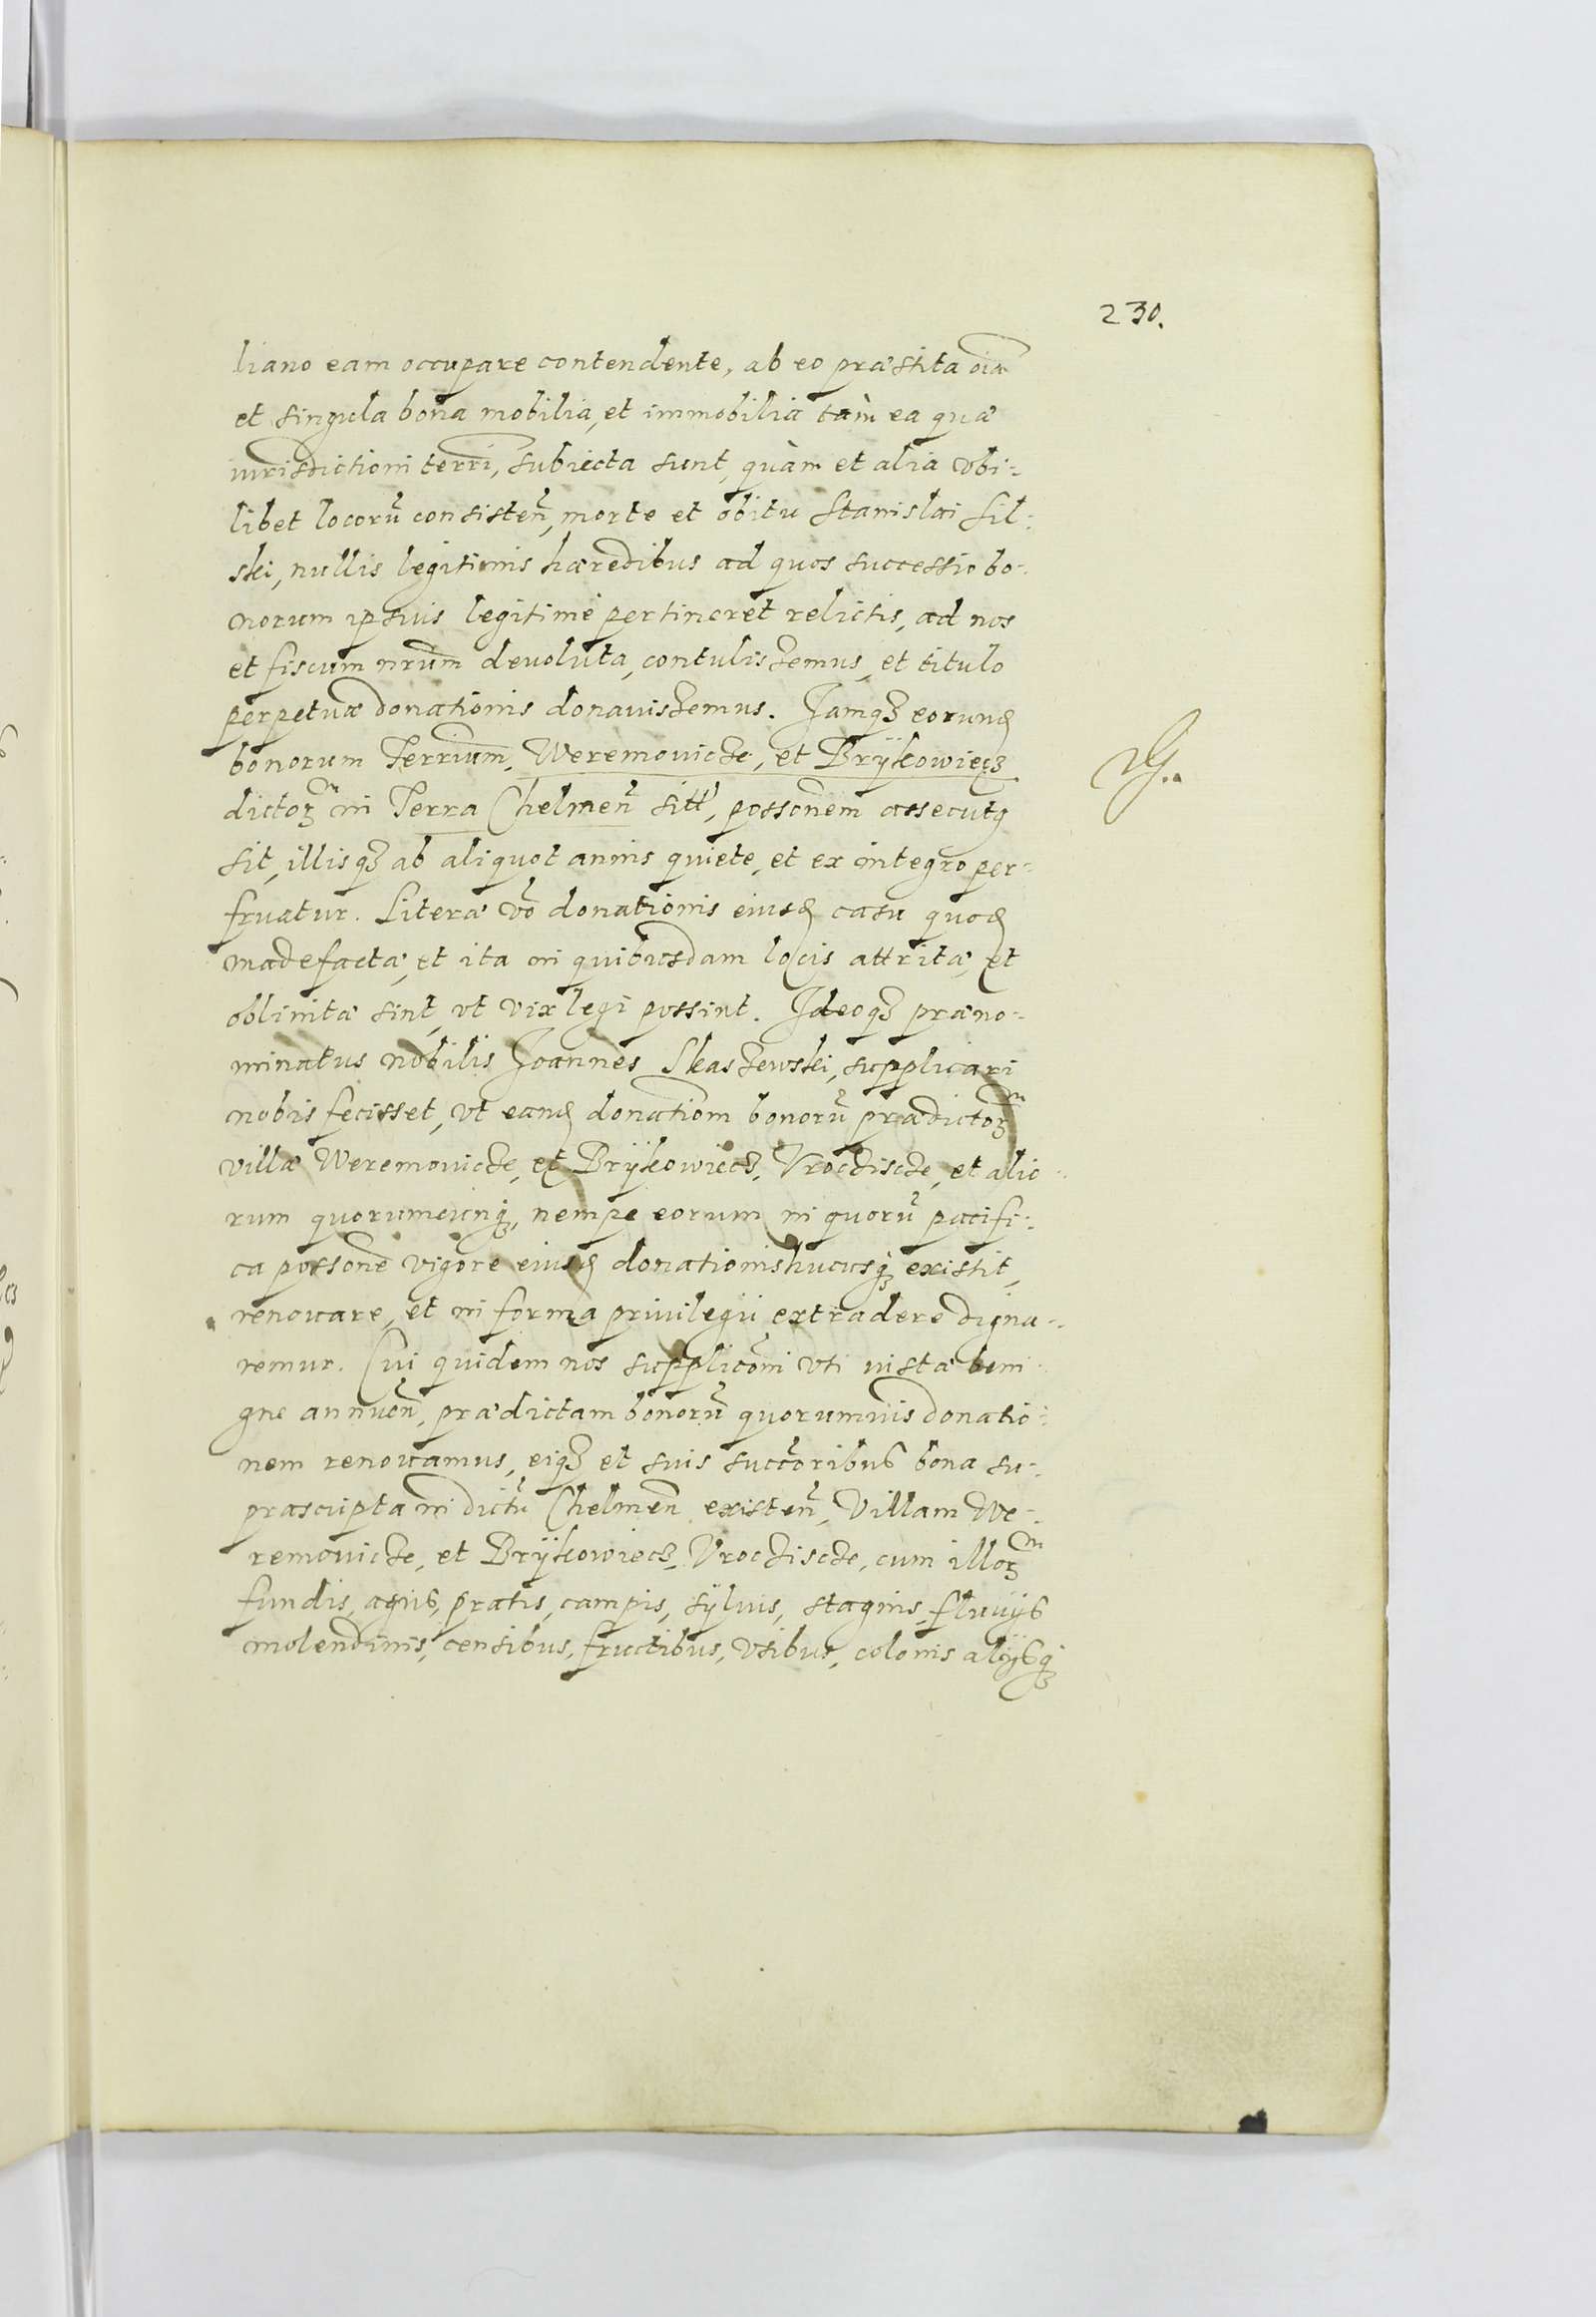 230.
liano eam occupare contendente, ab eo præstita oīa
et singula bona mobilia, et immobilia tàm ea quæ
iurisdictioni terrī, subiecta sunt, quàm et alia vbi-
libet locorū consisteñ, morte et obitu Stanislai Sil-
ski, nullis legitimis hæredibus ad quos successio bo-
norum ipsius legitimè pertineret relictis, ad nos
et fiscum nrūm devoluta, contulissemus, et titulo
perpetuæ donationis donauissemus. Jamqꝫ eorunꝺ
bonorum Terrium, Weremovicze, et Brÿkowiecz
dictoꝝ in Terra Chelmeñ sitt, possonem assecutꝯ
sit, illisqꝫ ab aliquot annis quiete, et ex integro per-
fruatur. Literæ vō donationis eiusꝺ casu quoꝺ
madefactæ, et ita in quibusdam locis attritæ, et
oblinitæ sint, vt vix legi possint. Ideoqꝫ præno-
minatus nobilis Joannes Skaszewski, supplicari
nobis fecisset, vt eanꝺ donatiom bonorū prædictoꝝ
villæ Weremovicze, et Brÿkowiecz, Vrocziscze, et alio-
rum quorumcunqꝫ, nempe eorum in quorū pacifi-
ca possone vigore eiusꝺ donationis hucusqꝫ existit,
renouare, et in forma privilegii extradere digna-
remur. Cui quidem nos supplicōni vti iustæ beni-
gne annueñ, prædictam bonorū quorumuis donatio-
nem renouamus, eiqꝫ et suis succōribus bona su-
prascripta in dictū Chelmeñ existeñ, Villam We-
removicze, et Brÿkowiecz, Vroczyscze, cum illoꝝ
fundis, agris, pratis, campis, sÿluis, stagnis, fluuijs
molendinis, censibus, fructibus, vsibus, colonis alijsqꝫ